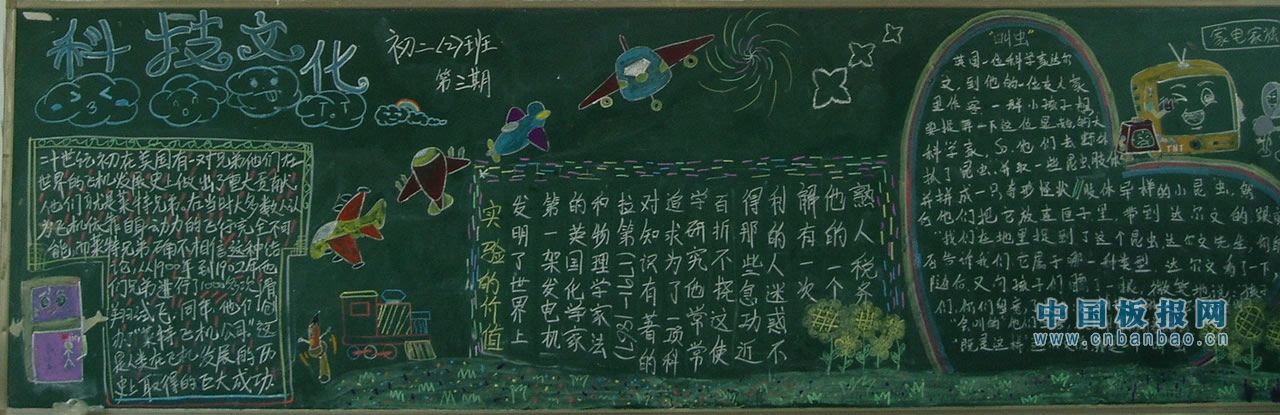 科技文化
初二(2)班
第三期
二十世纪初在美国有一对兄弟他们在
世界的飞机发展史上做出了重大贡献
他们就是莱特兄弟,在当时大多数人认
为飞机依靠自身动力的飞行完全不可
能,而莱特兄弟确不相信这种结
论,从1900年到1902年他
们兄弟进行了1000多次滑
翔试飞,同年,他们创
办"莱特飞机公司"这
是人类在飞机发展的历
史上取得的巨大成功
实验的价值
发明了世界上
第一架发电机
的英国化学家
和物理学家法
拉第
对知识有著的
追求为了一项科
学研究他常常
百折不挠这使
得那些急功近
利的人迷惑不
解有一次
他的一个
熟人税务
"叫虫"
英国一位科学家达尔
文,到他的一位友人家
里作客,一群小孩子想
要捉弄一下这位是他的大
科学家,他们去
抓了昆虫,并取一些昆虫肢体
并拼成一只奇形怪状肢体异样的小昆虫,然
后他们把它放在匣子里,带到达尔文的跟
"我们在地里捉到了这个昆虫达尔文先生,
告诉我们它属于哪一种类型,达尔文看了一下
随后又向孩子们瞟了一眼,微笑地说
们,你们
"会叫的"他们
"既是这样
家电家族
TNT
中国板报网
www.cnbanbao.cn